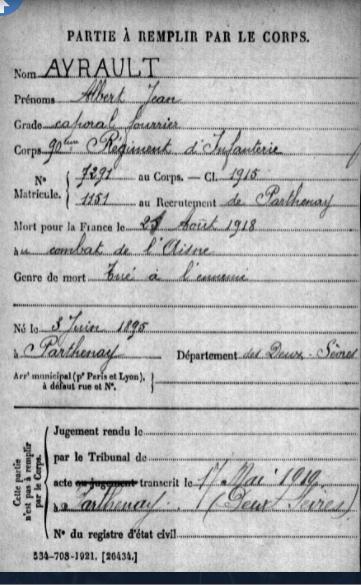 PARTIE À REMPLIR PAR LE CORPS.
Nom AYRAULT
Prénoms Albert Jean
Grade caporal fourrier
Corps 90ème Régiment d'Infanterie
N° Matricule. { 7291 au Corps. — Cl. 1915
1151 au Recrutement de Parthenay
Mort pour la France le Août 1918
à au combat de l'Aisne
Genre de mort Tué à l'ennemi
Né le 3 Juin 1895
à Parthenay Département des Deux-Sèvres
Arrt municipal (pr Paris et Lyon), à défaut rue et N°. }
Cette partie n'est pas à remplir par le Corps.
Jugement rendu le
par le Tribunal de
acte ou jugement transcrit le 17 Mai 1919
à Parthenay (Deux Sèvres)
N° du registre d'état civil
534-708-1921. [26434.]